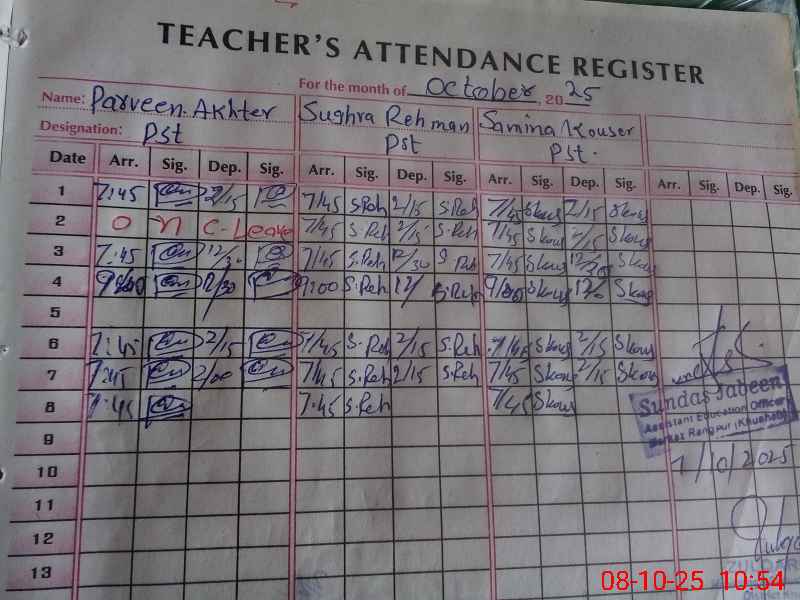 TEACHER'S ATTENDANCE REGISTER
For the month of October, 2025
Name: Parveen Akhter Sughra Rehman Samina Kouser
Designation: Pst Pst Pst.
Date Arr. Sig. Dep. Sig. Arr. Sig. Dep. Sig. Arr. Sig. Dep. Sig. Arr. Sig. Dep. Sig.
1 7:45 2/15 7/45 S.Reh 2/15 S.Reh 7/45 Skous 2/15 Skous
2 On C-Leave 7/45 S.Reh 2/15 S.Reh 7/45 Skous 2/15 Skous
3 7:45 12/30 7/45 S.Reh 12/30 S.Reh 7/45 Skous Skous
4 12/30 9:00 S.Reh 12/ S.Reh Skous Skous
5
6 7:45 2/15 7/45 S.Reh 2/15 S.Reh 7/45 Skous 2/15 Skous
7 7:45 2/00 7/45 S.Reh 2/15 S.Reh 7/45 Skous 2/15 Skous
8 7:45 7:45 S.Reh 7/45 Skous
9
10
11
12
13
Sundas Jabeen
Assistant Education Officer
Markaz Rangpur (Khushab)
7/10/2025
08-10-25 10:54